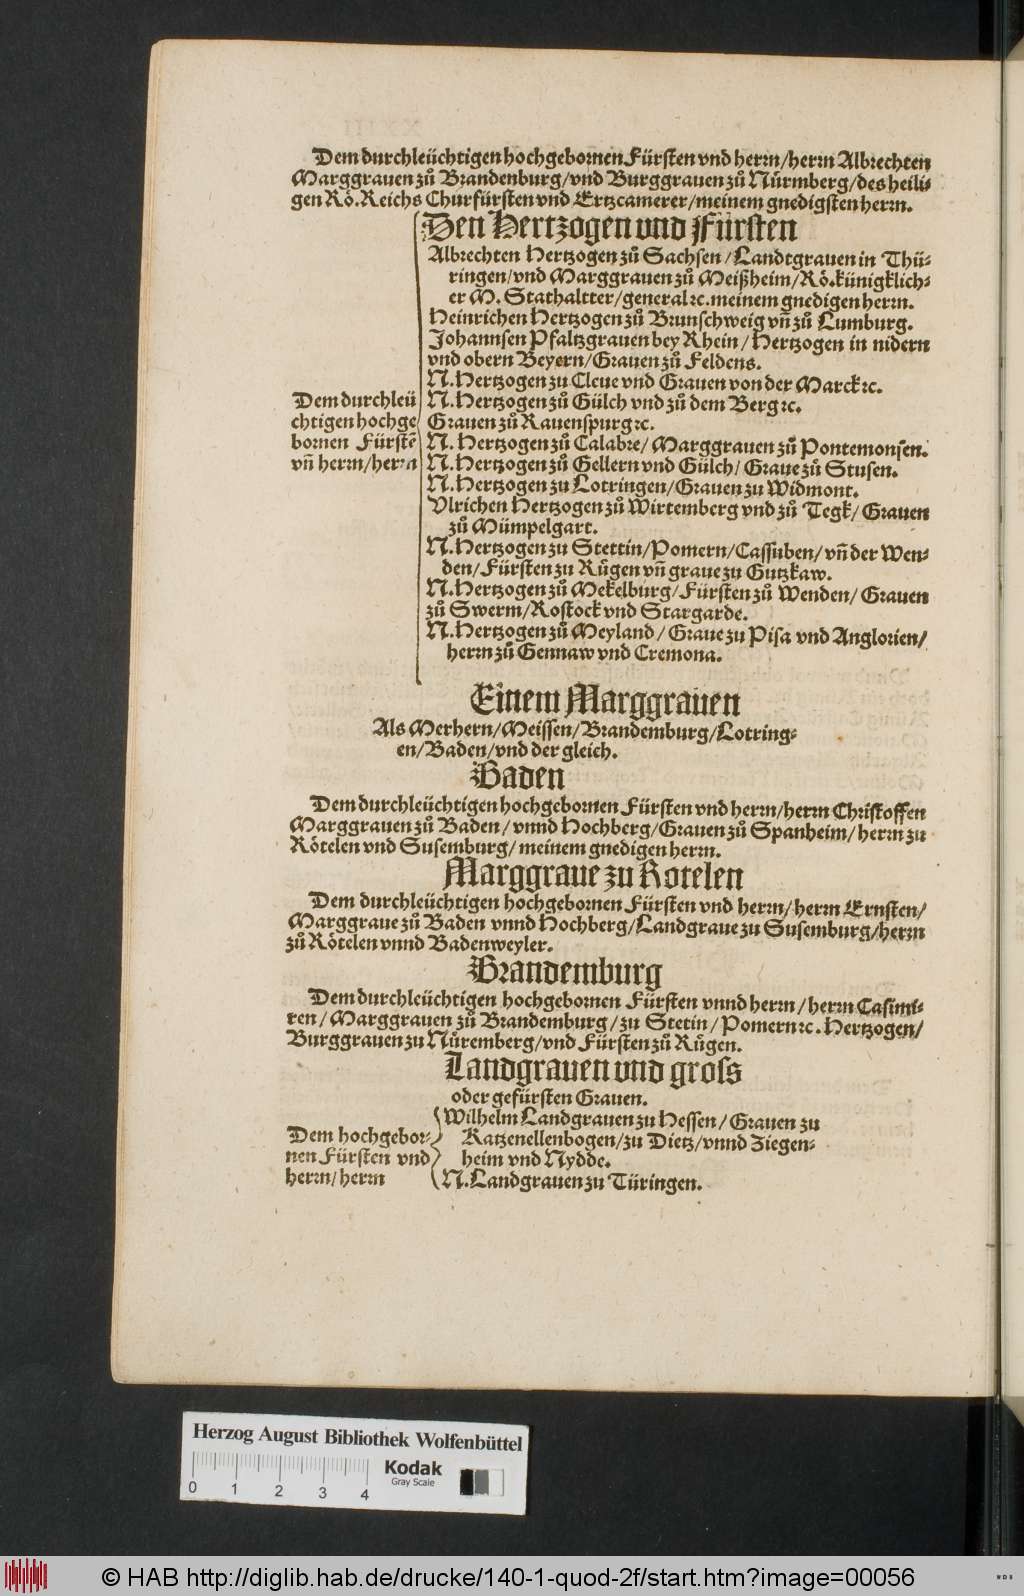 Dem durchleüchtigen hochgebornen Fürsten vnd herrn/herrn Albrechten
Marggrauen zů Brandenburg/vnd Burggrauen zů Nůrmberg/des heili-
gen Rö.Reichs Churfürsten vnd Ertzcamerer/meinem gnedigsten herrn.
Den Hertzogen vnd Fürsten
Albrechten Hertzogen zů Sachsen/Landtgrauen in Thü-
ringen/vnd Marggrauen zů Meißheim/Rö.künigklich-
er M. Stathaltter/general ꝛc.meinem gnedigen herrn.
Heinrichen Hertzogen zů Brunschweig vn̄ zů Lumburg.
Johannsen Pfaltzgrauen bey Rhein/Hertzogen in nidern
vnd obern Beyern/Grauen zů Feldens.
N.Hertzogen zu Cleue vnd Grauen von der Marck ꝛc.
Dem durchleü
echtigen hochge
bornen Fürstē
vn̄ herrn/herrn
N.Hertzogen zů Gülch vnd zů dem Berg ꝛc.
Grauen zů Rauenspurg ꝛc.
N. Hertzogen zů Calabre/ Marggrauen zů Pontemonsen.
N.Hertzogen zů Gellern vnd Gülch/ Graue zů Stusen.
N.Hertzogen zu Lotringen/Grauen zu Widmont.
Vlrichen Hertzogen zů Wirtemberg vnd zů Tegk/ Grauen
zů Mümpelgart.
N.Hertzogen zu Stettin/Pomern/Cassuben/vn̄ der Wen-
den/Fürsten zu Rügen vn̄ graue zu Gutzkaw.
N.Hertzogen zů Mekelburg/Fürsten zů Wenden/ Grauen
zů Swerm/Rostock vnd Stargarde.
N.Hertzogen zů Meyland/ Graue zu Pisa vnd Anglorien/
herrn zů Gennaw vnd Cremona.
Einem Marggrauen
Als Merhern/Meissen/Brandemburg/Lotring-
en/Baden/vnd der gleich.
Baden
Dem durchleüchtigen hochgebornen Fürsten vnd herrn/herrn Christoffen
Marggrauen zů Baden/ vnnd Hochberg/Grauen zů Spanheim/ herrn zu
Rötelen vnd Susemburg/ meinem gnedigen herrn.
Marggraue zu Rotelen
Dem durchleüchtigen hochgebornen Fürsten vnd herrn/herrn Ernsten/
Marggraue zů Baden vnnd Hochberg/Landgraue zu Susemburg/herrn
zů Rötelen vnnd Badenweyler.
Brandemburg
Dem durchleüchtigen hochgebornen Fürsten vnnd herrn/herrn Casimi-
ren/Marggrauen zů Brandemburg/zu Stetin/Pomern ꝛc. Hertzogen/
Burggrauen zu Nůremberg/vnd Fürsten zů Rügen.
Landgrauen vnd gross
oder gefürsten Grauen.
Dem hochgebor-
nen Fürsten vnd
herrn/herrn
Wilhelm Landgrauen zu Hessen/Grauen zu
Katzenellenbogen/zu Dietz/vnnd Ziegen-
heim vnd Nydde.
N.Landgrauen zu Türingen.
Herzog August Bibliothek Wolfenbüttel
Kodak
Gray Scale
0 1 2 3 4
© HAB http://diglib.hab.de/drucke/140-1-quod-2f/start.htm?image=00056